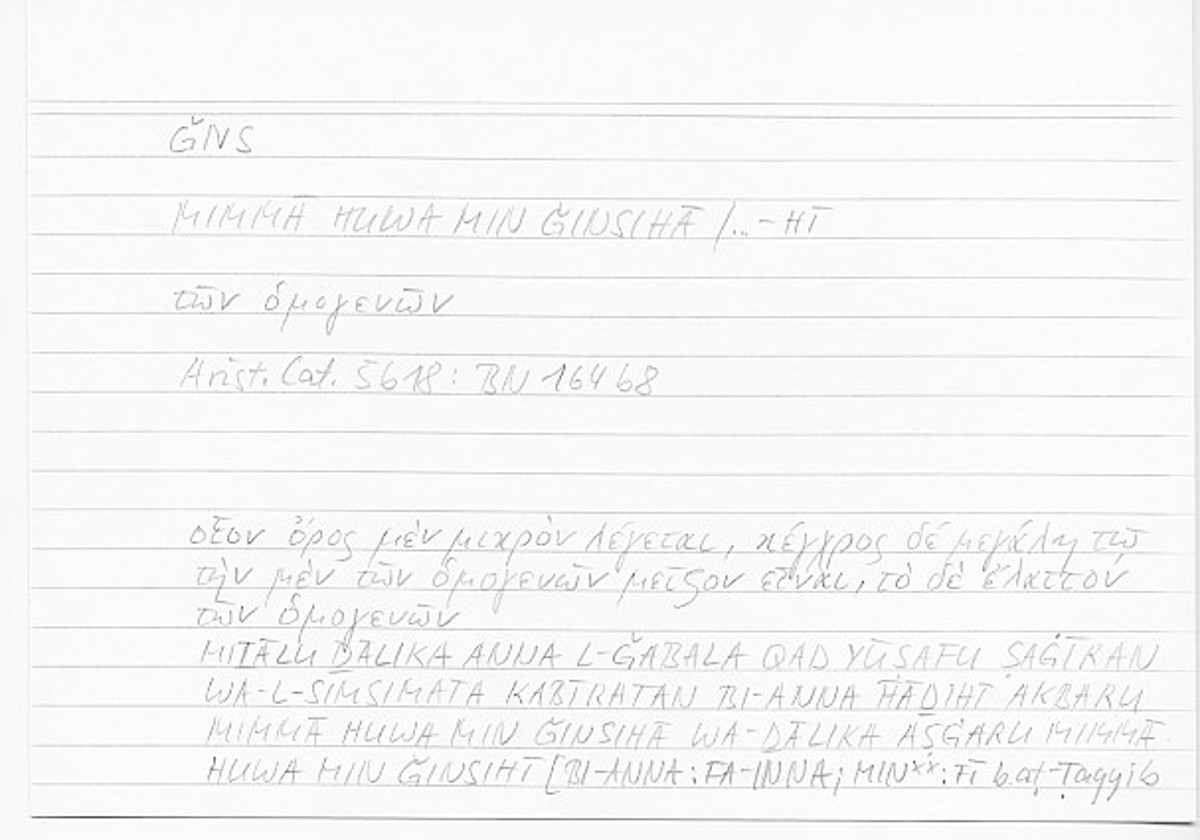 ǦNS
MIMMĀ HUWA MIN ǦINSIHĀ /...-HĪ
τῶν ὁμογενῶν
Arist. Cat. 5b18: BN 164b8
οἷον ὄρος μὲν μικρὸν λέγεται, κέγχρος δὲ μεγάλη τῷ
τὴν μὲν τῶν ὁμογενῶν μεῖζον εἶναι, τὸ δὲ ἔλαττον
τῶν ὁμογενῶν
MIṮĀLU ḎĀLIKA ANNA L-ǦABALA QAD YŪṢAFU ṢAĠĪRAN
WA-L-SIMSIMATA KABĪRATAN BI-ANNA HĀḎIHĪ AKBARU
MIMMĀ HUWA MIN ǦINSIHĀ WA-ḎĀLIKA AṢĠARU MIMMĀ
HUWA MIN ǦINSIHĪ [BI-ANNA: FA-INNA; MIN××: FĪ b. aṭ-Ṭayyib